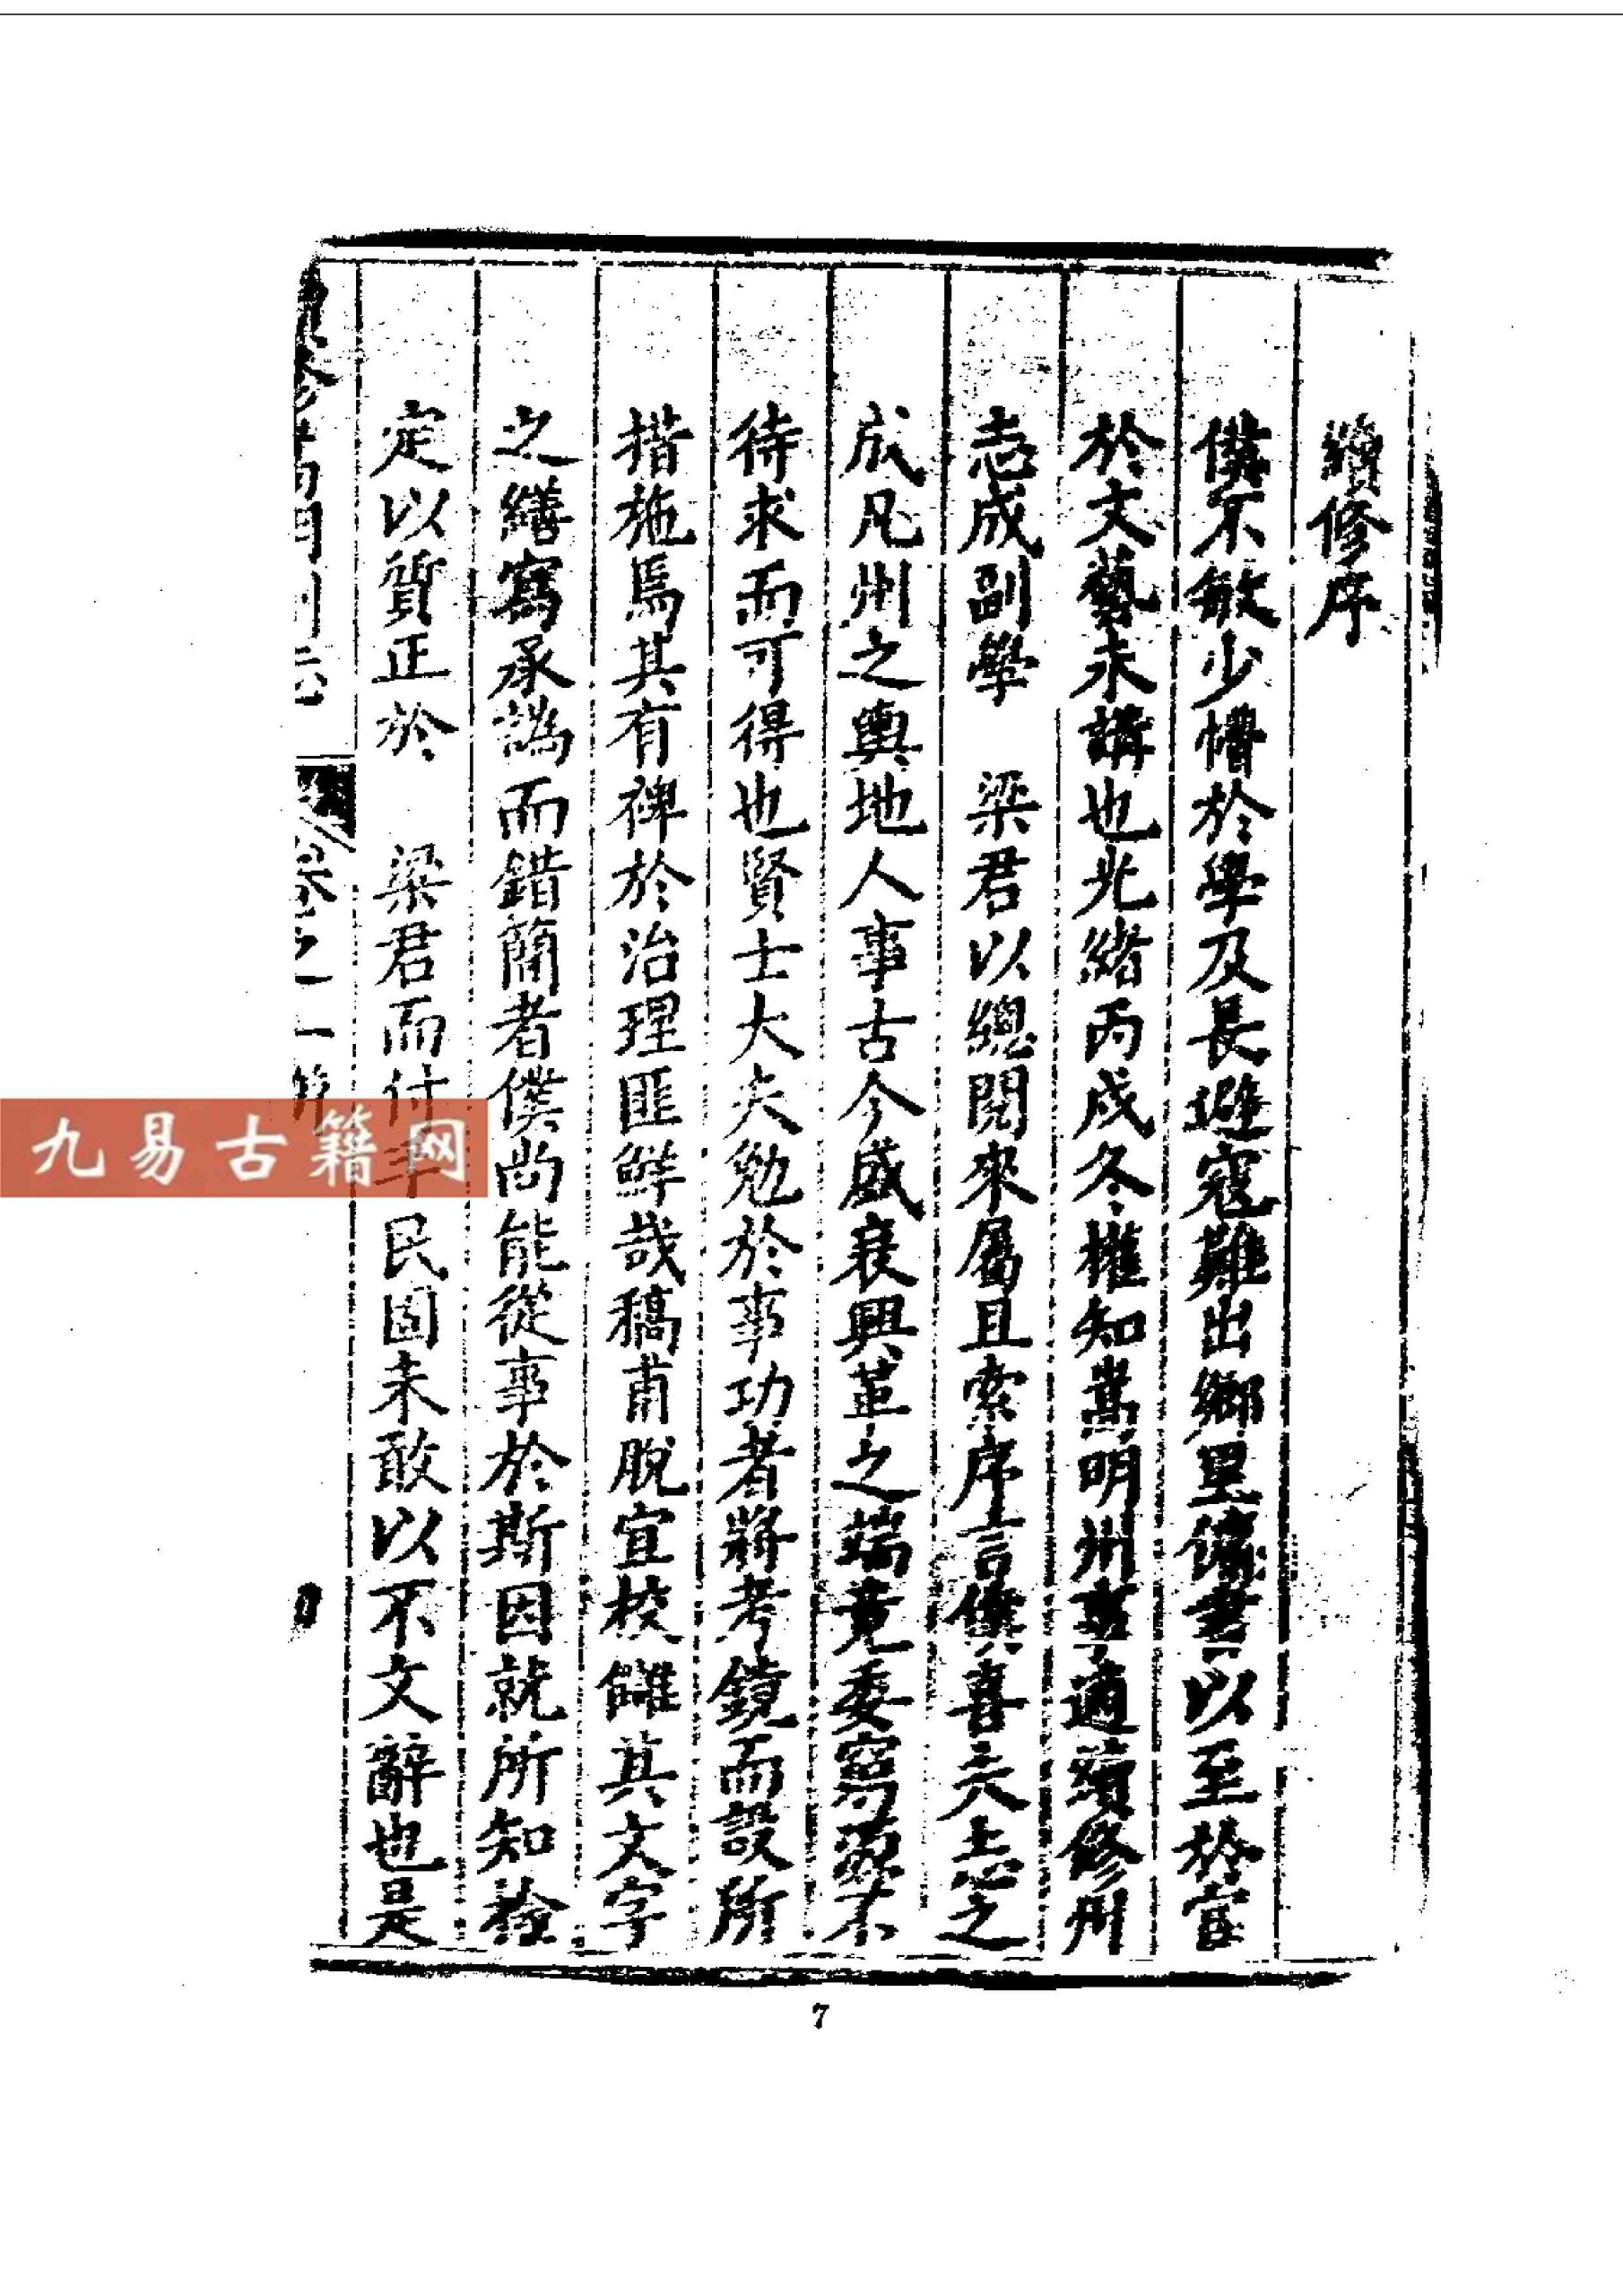 續修序
僕不敏少懵於學及長避寇難出鄉里傭書以至於官
於文藝未講也光緒丙戌冬權知嵩明州事適續修州
志成副學　梁君以總閱來屬且索序言僕喜夫志之
成凡州之輿地人事古今盛衰興革之端竟委窮源不
待求而可得也賢士大夫勉於事功者將考鏡而設所
措施焉其有裨於治理匪鮮哉稿甫脫宜校讎其文字
之繕寫承譌而錯簡者僕尚能從事於斯因就所知檢
定以質正於　梁君而付手民固未敢以不文辭也是
卷之一
九易古籍网
7